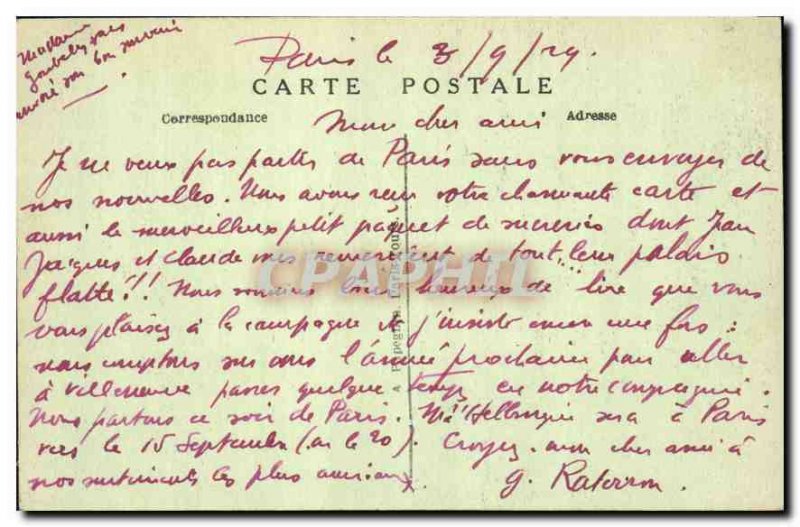 Madame
envoie son bon souvenir
Paris le 3/9/29.
CARTE POSTALE
Correspondance
Adresse
Mon cher ami
Je ne veux pas partir de Paris sans vous envoyer de
nos nouvelles. Nous avons reçu votre charmante carte et
aussi le merveilleux petit paquet de sucreries dont Jean
Jacques et Claude vous remercient de tout leur palais
flatté!! Nous sommes bien heureux de lire que vous
vous plaisez à la campagne et j'insiste encore une fois :
nous comptons sur vous l'année prochaine pour aller
à Villeneuve passer quelque temps en notre compagnie.
Nous partons ce soir de Paris. sera à Paris
vers le 15 Septembre (ou le 20). Croyez, mon cher ami à
nos sentiments les plus amicaux.
G.
A. Papeghin, Paris-Tours
CPAPHIL